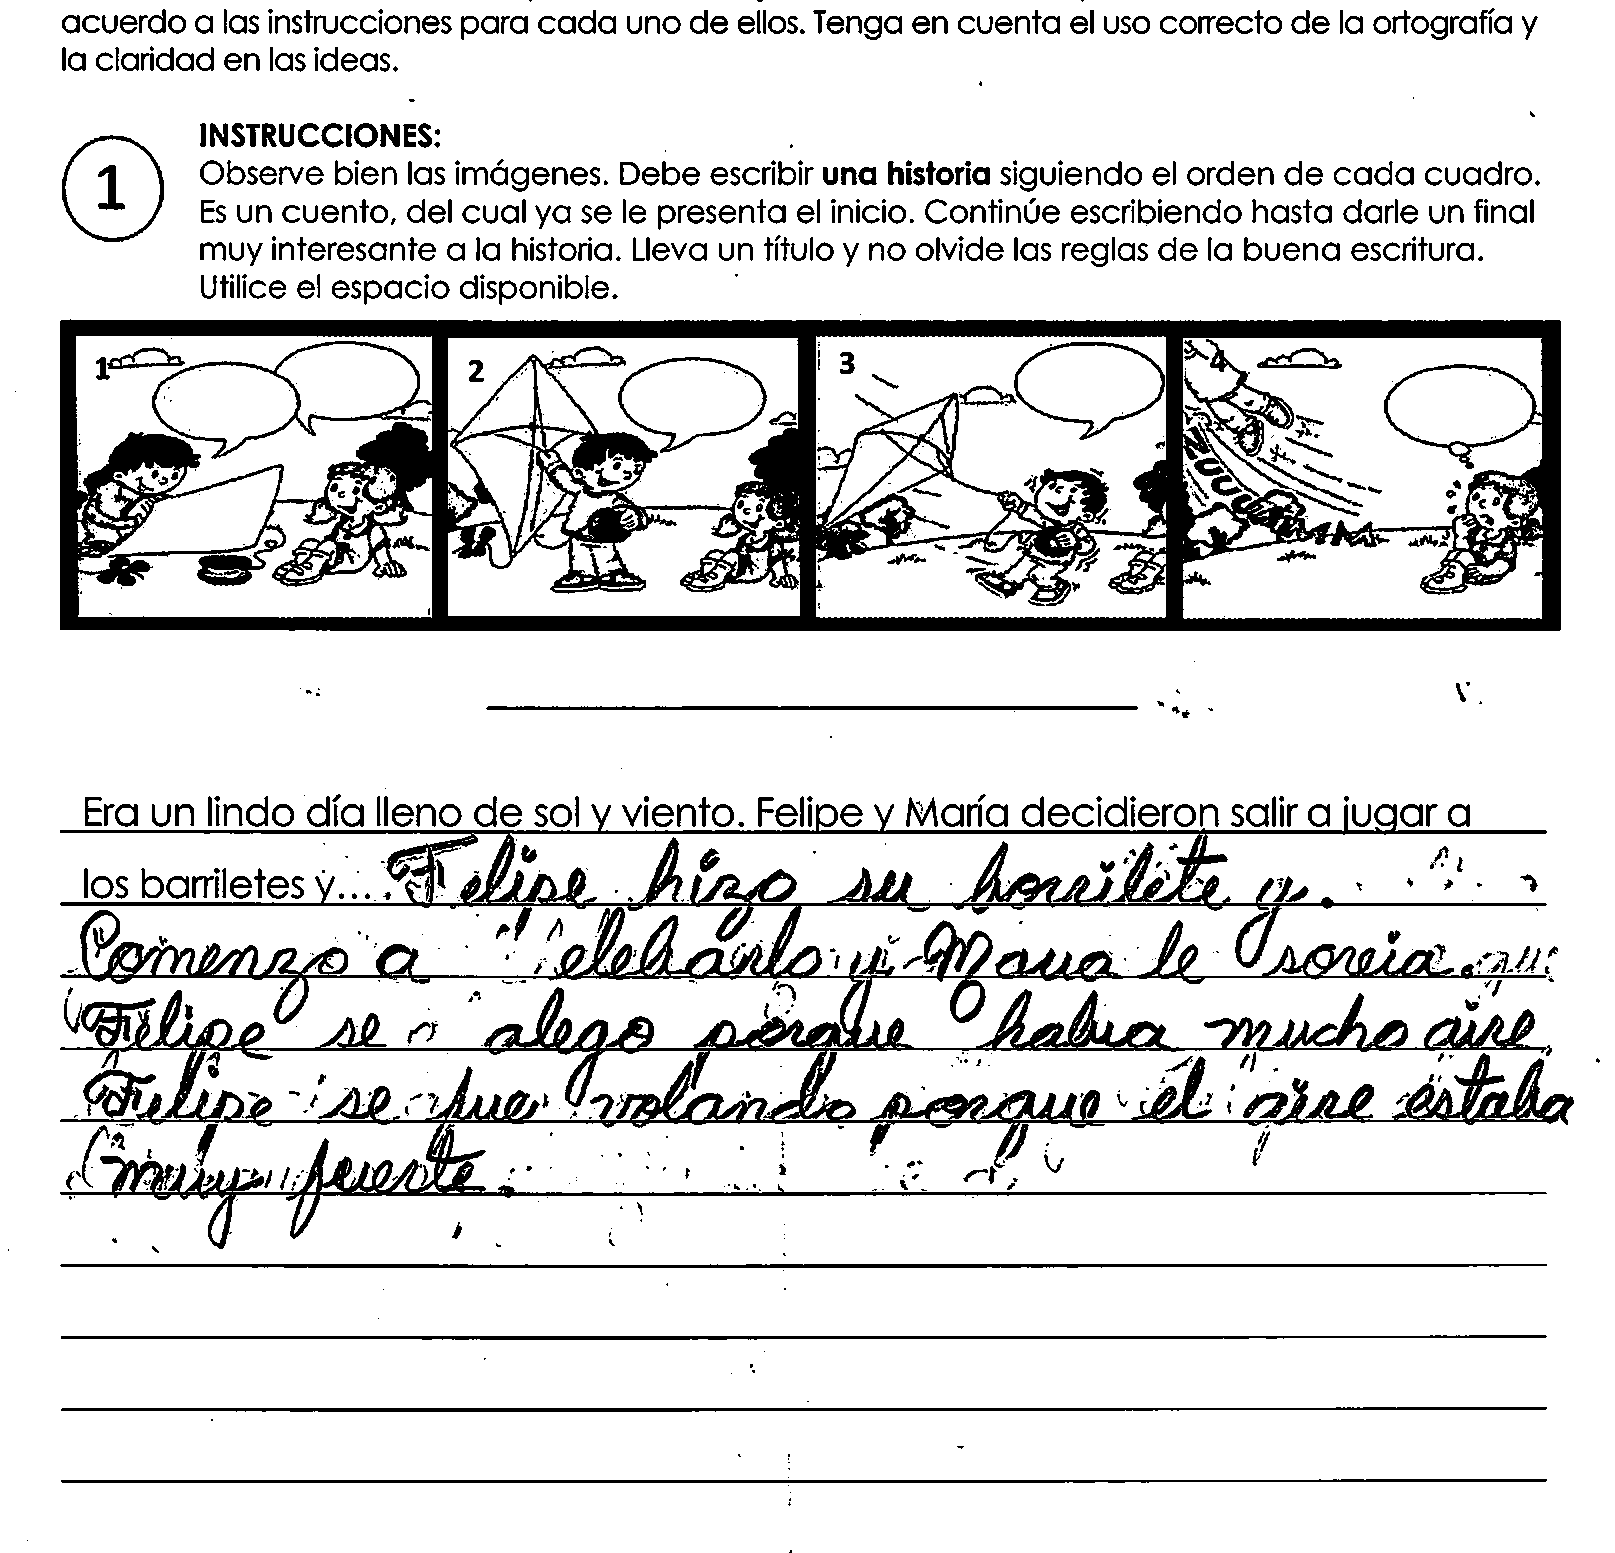 acuerdo a las instrucciones para cada uno de ellos. Tenga en cuenta el uso correcto de la ortografía y
la claridad en las ideas.
1
INSTRUCCIONES:
Observe bien las imágenes. Debe escribir una historia siguiendo el orden de cada cuadro.
Es un cuento, del cual ya se le presenta el inicio. Continúe escribiendo hasta darle un final
muy interesante a la historia. Lleva un título y no olvide las reglas de la buena escritura.
Utilice el espacio disponible.
1 2 3 4
Era un lindo día lleno de sol y viento. Felipe y María decidieron salir a jugar a
los barriletes y.... Felipe hizo su barrilete y.
Comenzo a elebarlo y Maria le soreia.
Felipe se alego porque habia mucho aire
Felipe se fue volando porque el aire estaba
muy fuerte.